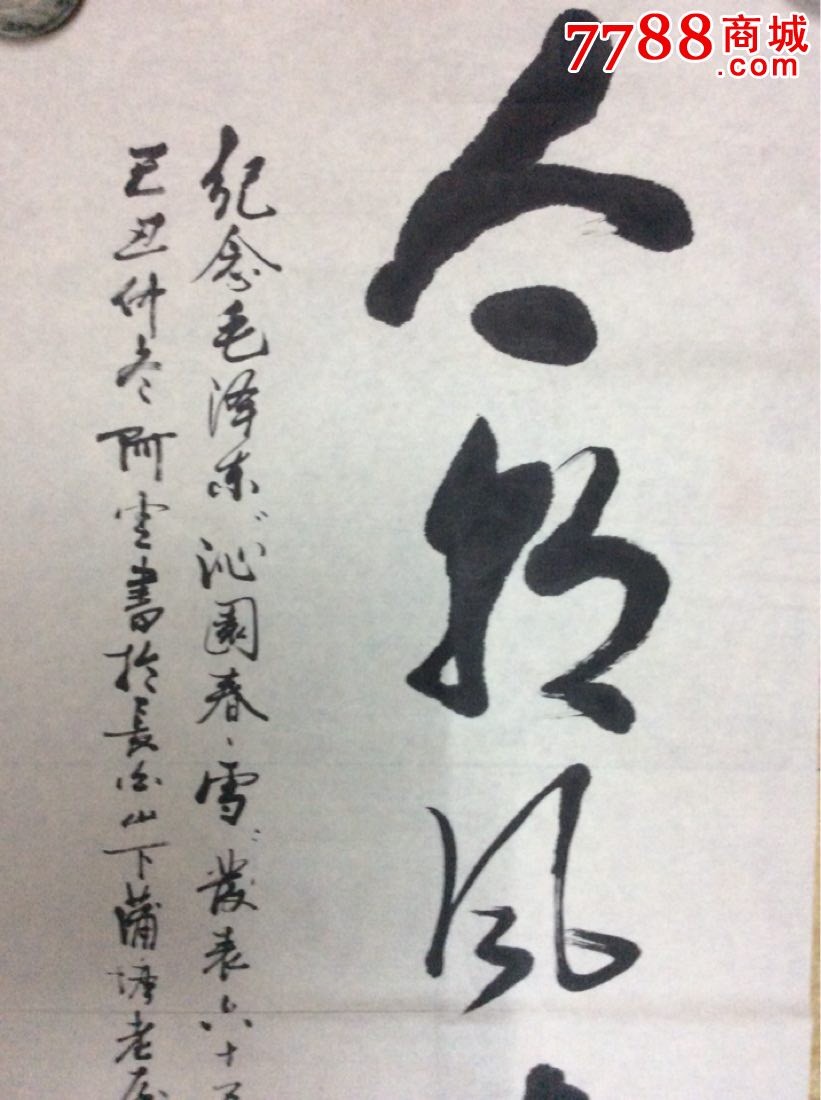 7788商城
.com
今朝风
纪念毛泽东“沁園春、雪”发表六十五
己丑仲冬阿雲書於長白山下蒲塘老屋